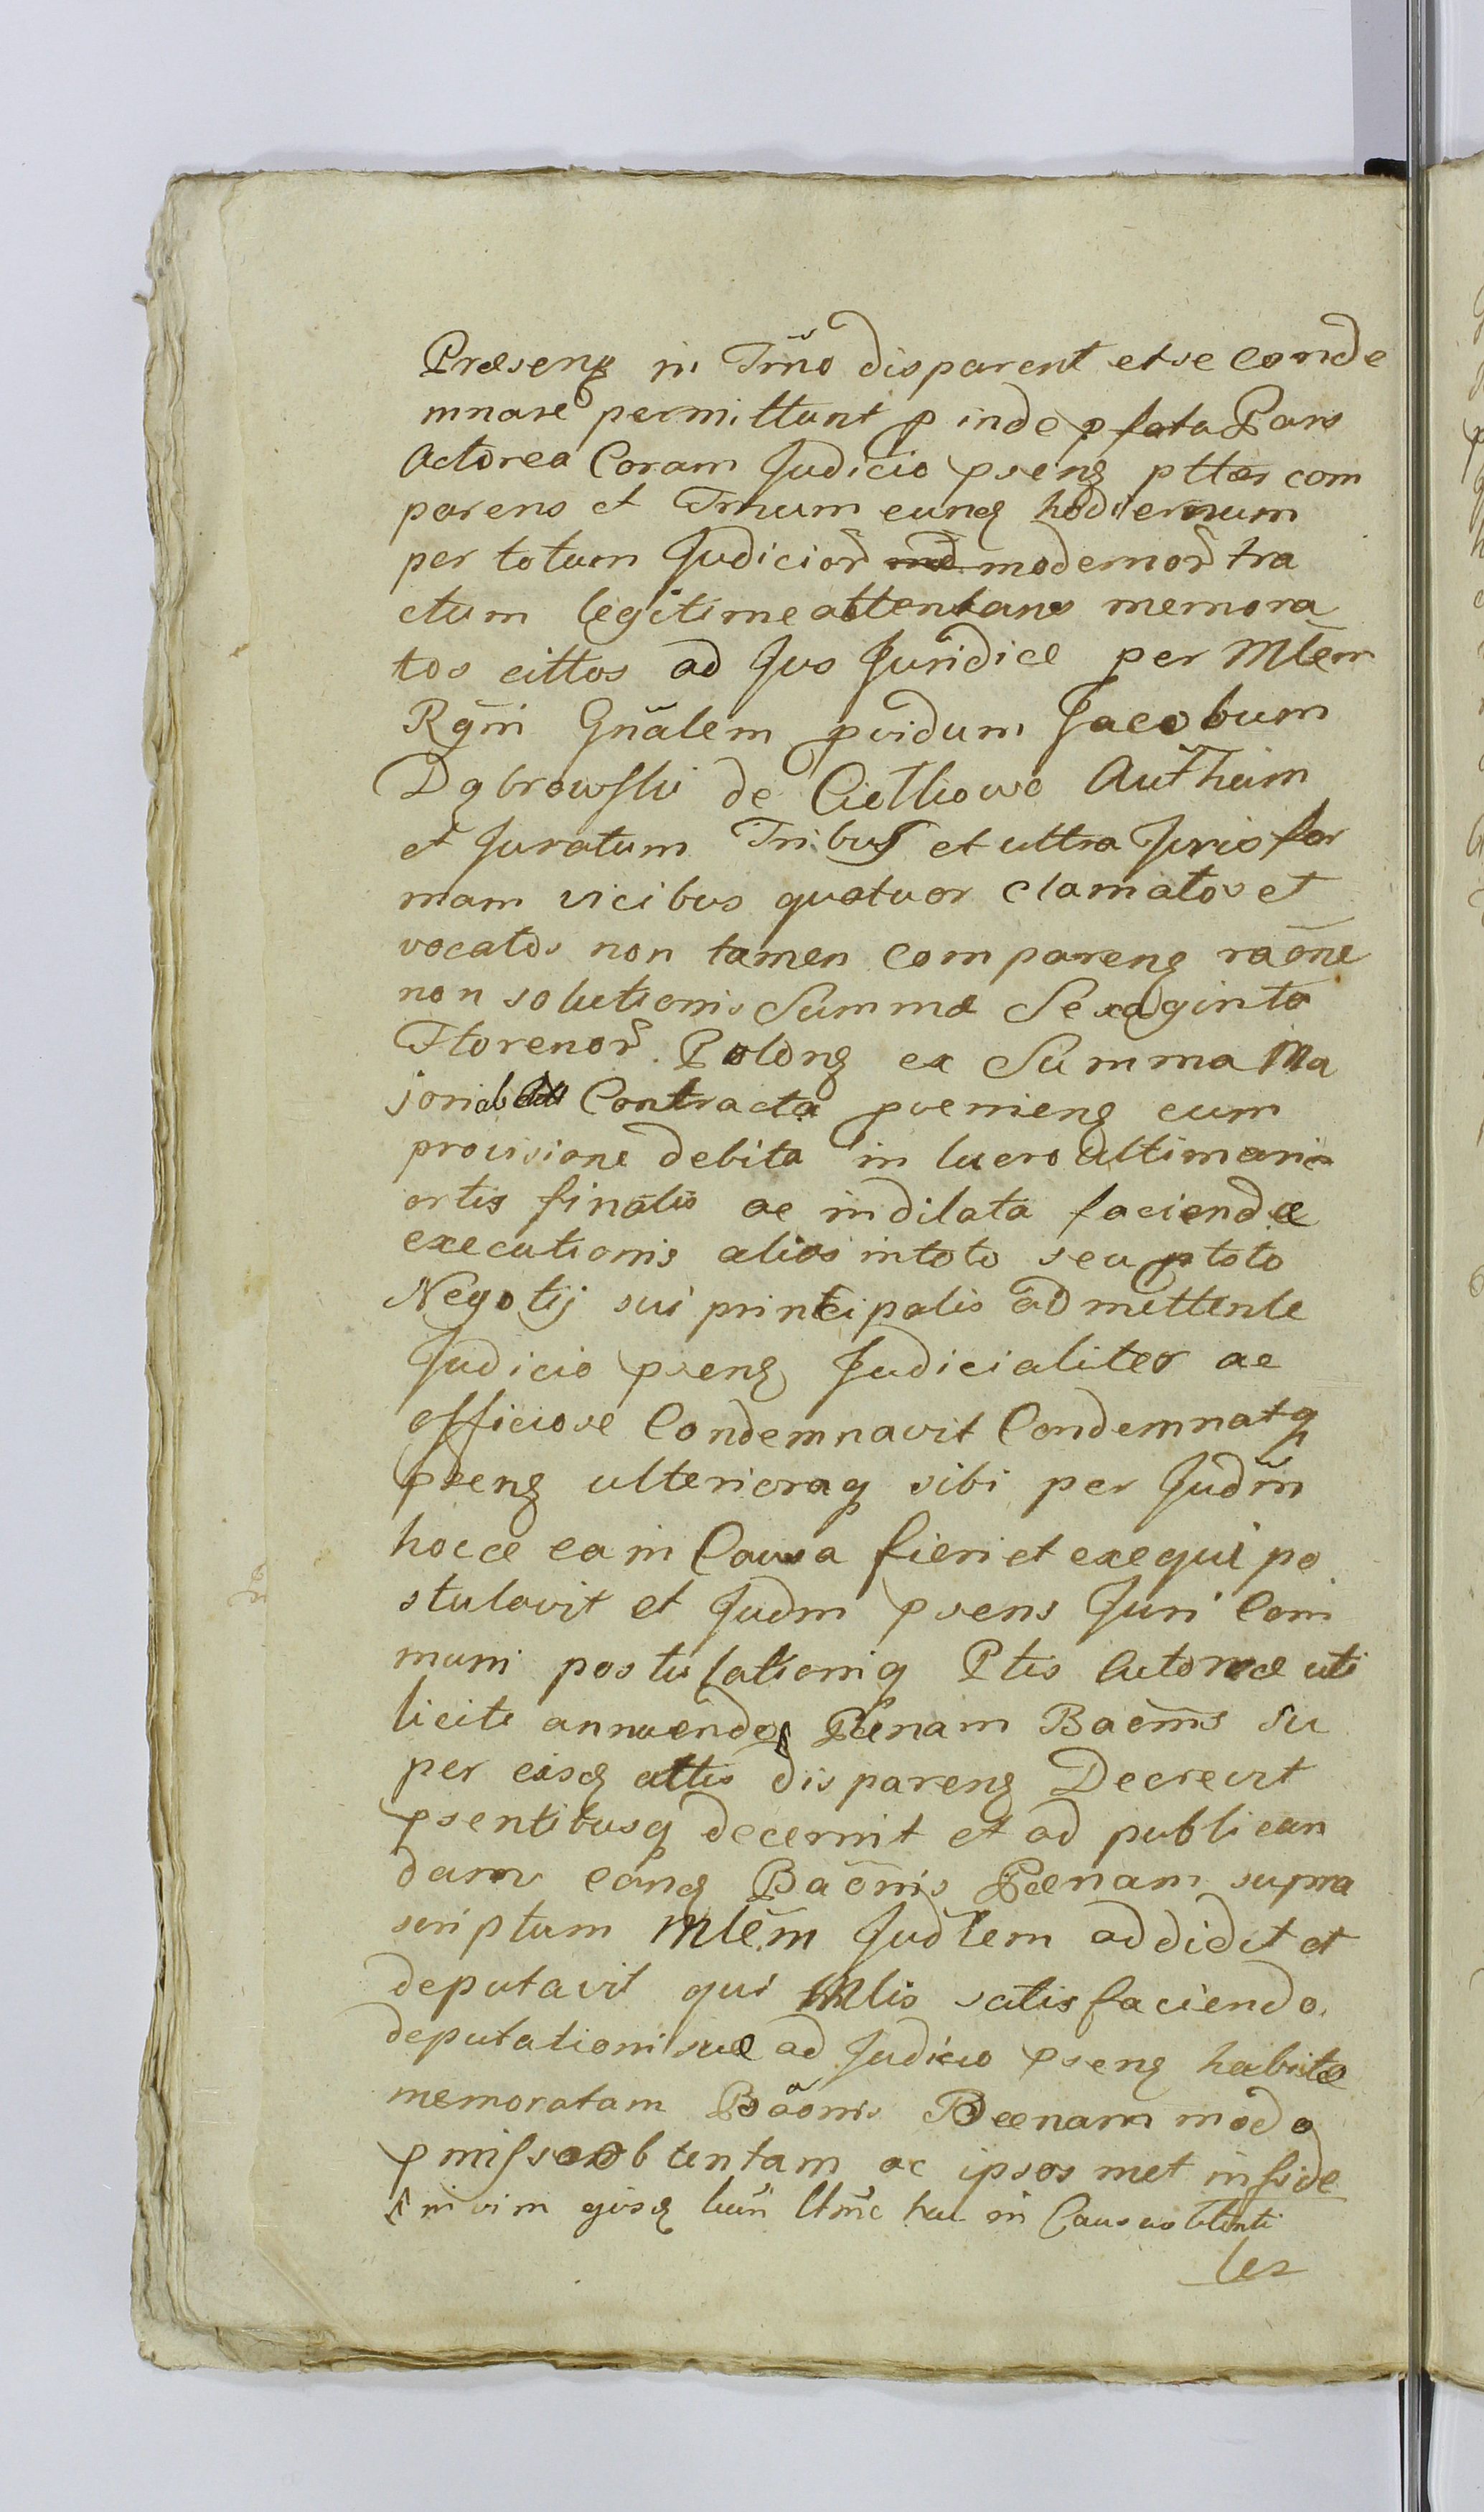 Præsenꝫ in Tm̃o disparent et se conde
mnare permittunt p inde pfata Pars
Actorea Coram Judicio psenꝫ ptter com
parens et Tmum eunꝫ hodiernum
per totum Judicior̃ modernor̃ tra
ctum legitime attentans memora
tos cittos ad Jus Juridice per Mlẽm
Rg̃ni Gñalem pvidum Jacobum
Dąbrowski de Authũm
et Juratum Tribus et ultra Juris for
mam vicibus quatuor clamatos et
vocatos non tamen comparenꝫ raõne
non solutionis Summæ Sexaginta
Florenor̃ Polonꝫ ex Summa Ma
jori Contracta pvenienꝫ cum
provisione debita in lucro ultimaria
ortis finalis ac indilata faciendæ
executionis alias in toto seu p toto
Negotij sui principalis admittente
Judicio psenꝫ Judicialiter ac
officiose Condemnavit Condemnatq
psenꝫ ulterioraq sibi per Judm̃
hocce ea in Causa fieri et exequi po
stulavit et Judm psens Juri Com
muni postulationiq Ptis Actoreæ uti
licite annuendo Pænam Baõnis su
per eisꝫ cittis disparenꝫ Decrevit
psentibusq decernit et ad publican
dam eanꝫ Baõnis Pænam supra
scriptum Mlẽm Judlem addidit et
deputavit qui Mlis satisfaciendo
deputationi suæ ad Judicio psenꝫ habitæ
memoratam Baõnis Pænam modo
pmisso obtentam ac ipsos met inside
in vim ejusꝫ in Causa
les